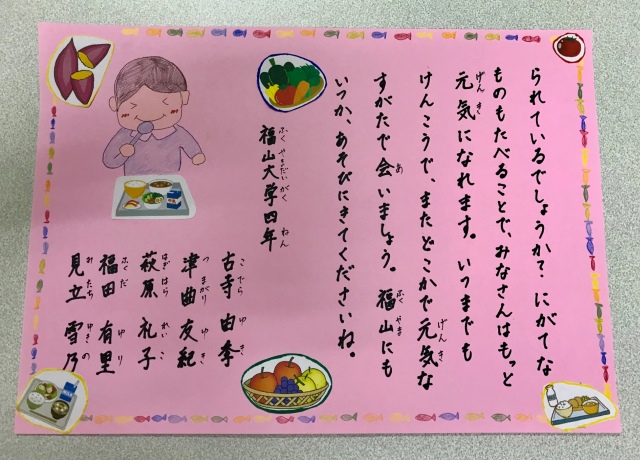 られているでしょうか？にがてな
ものもたべることで、みなさんはもっと
元気になれます。いつまでも
けんこうで、またどこかで元気な
すがたで会いましょう。福山にも
いつか、あそびにきてくださいね。
福山大学四年
古寺 由季
津曲 友紀
萩原 礼子
福田 有里
見立 雪乃